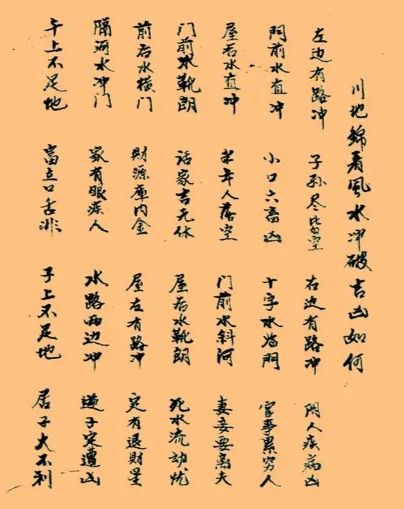 川地錦看風水冲破吉凶如何
左边有路冲
子孙尽比空
右边有路冲
阴人疾病凶
門前水直冲
小口六畜凶
十字水当門
官事累穷人
屋后水直冲
老年人落空
門前水斜河
妻妾要离夫
门前水靴朗
话家吉无休
屋后水靴朗
死水流动忧
前后水横门
財源庫内金
屋左有路冲
定有退財星
隔河水冲门
家有眼疾人
水路两边冲
逆子定遭凶
午上不足地
富立口舌非
子上不足地
居子大不利